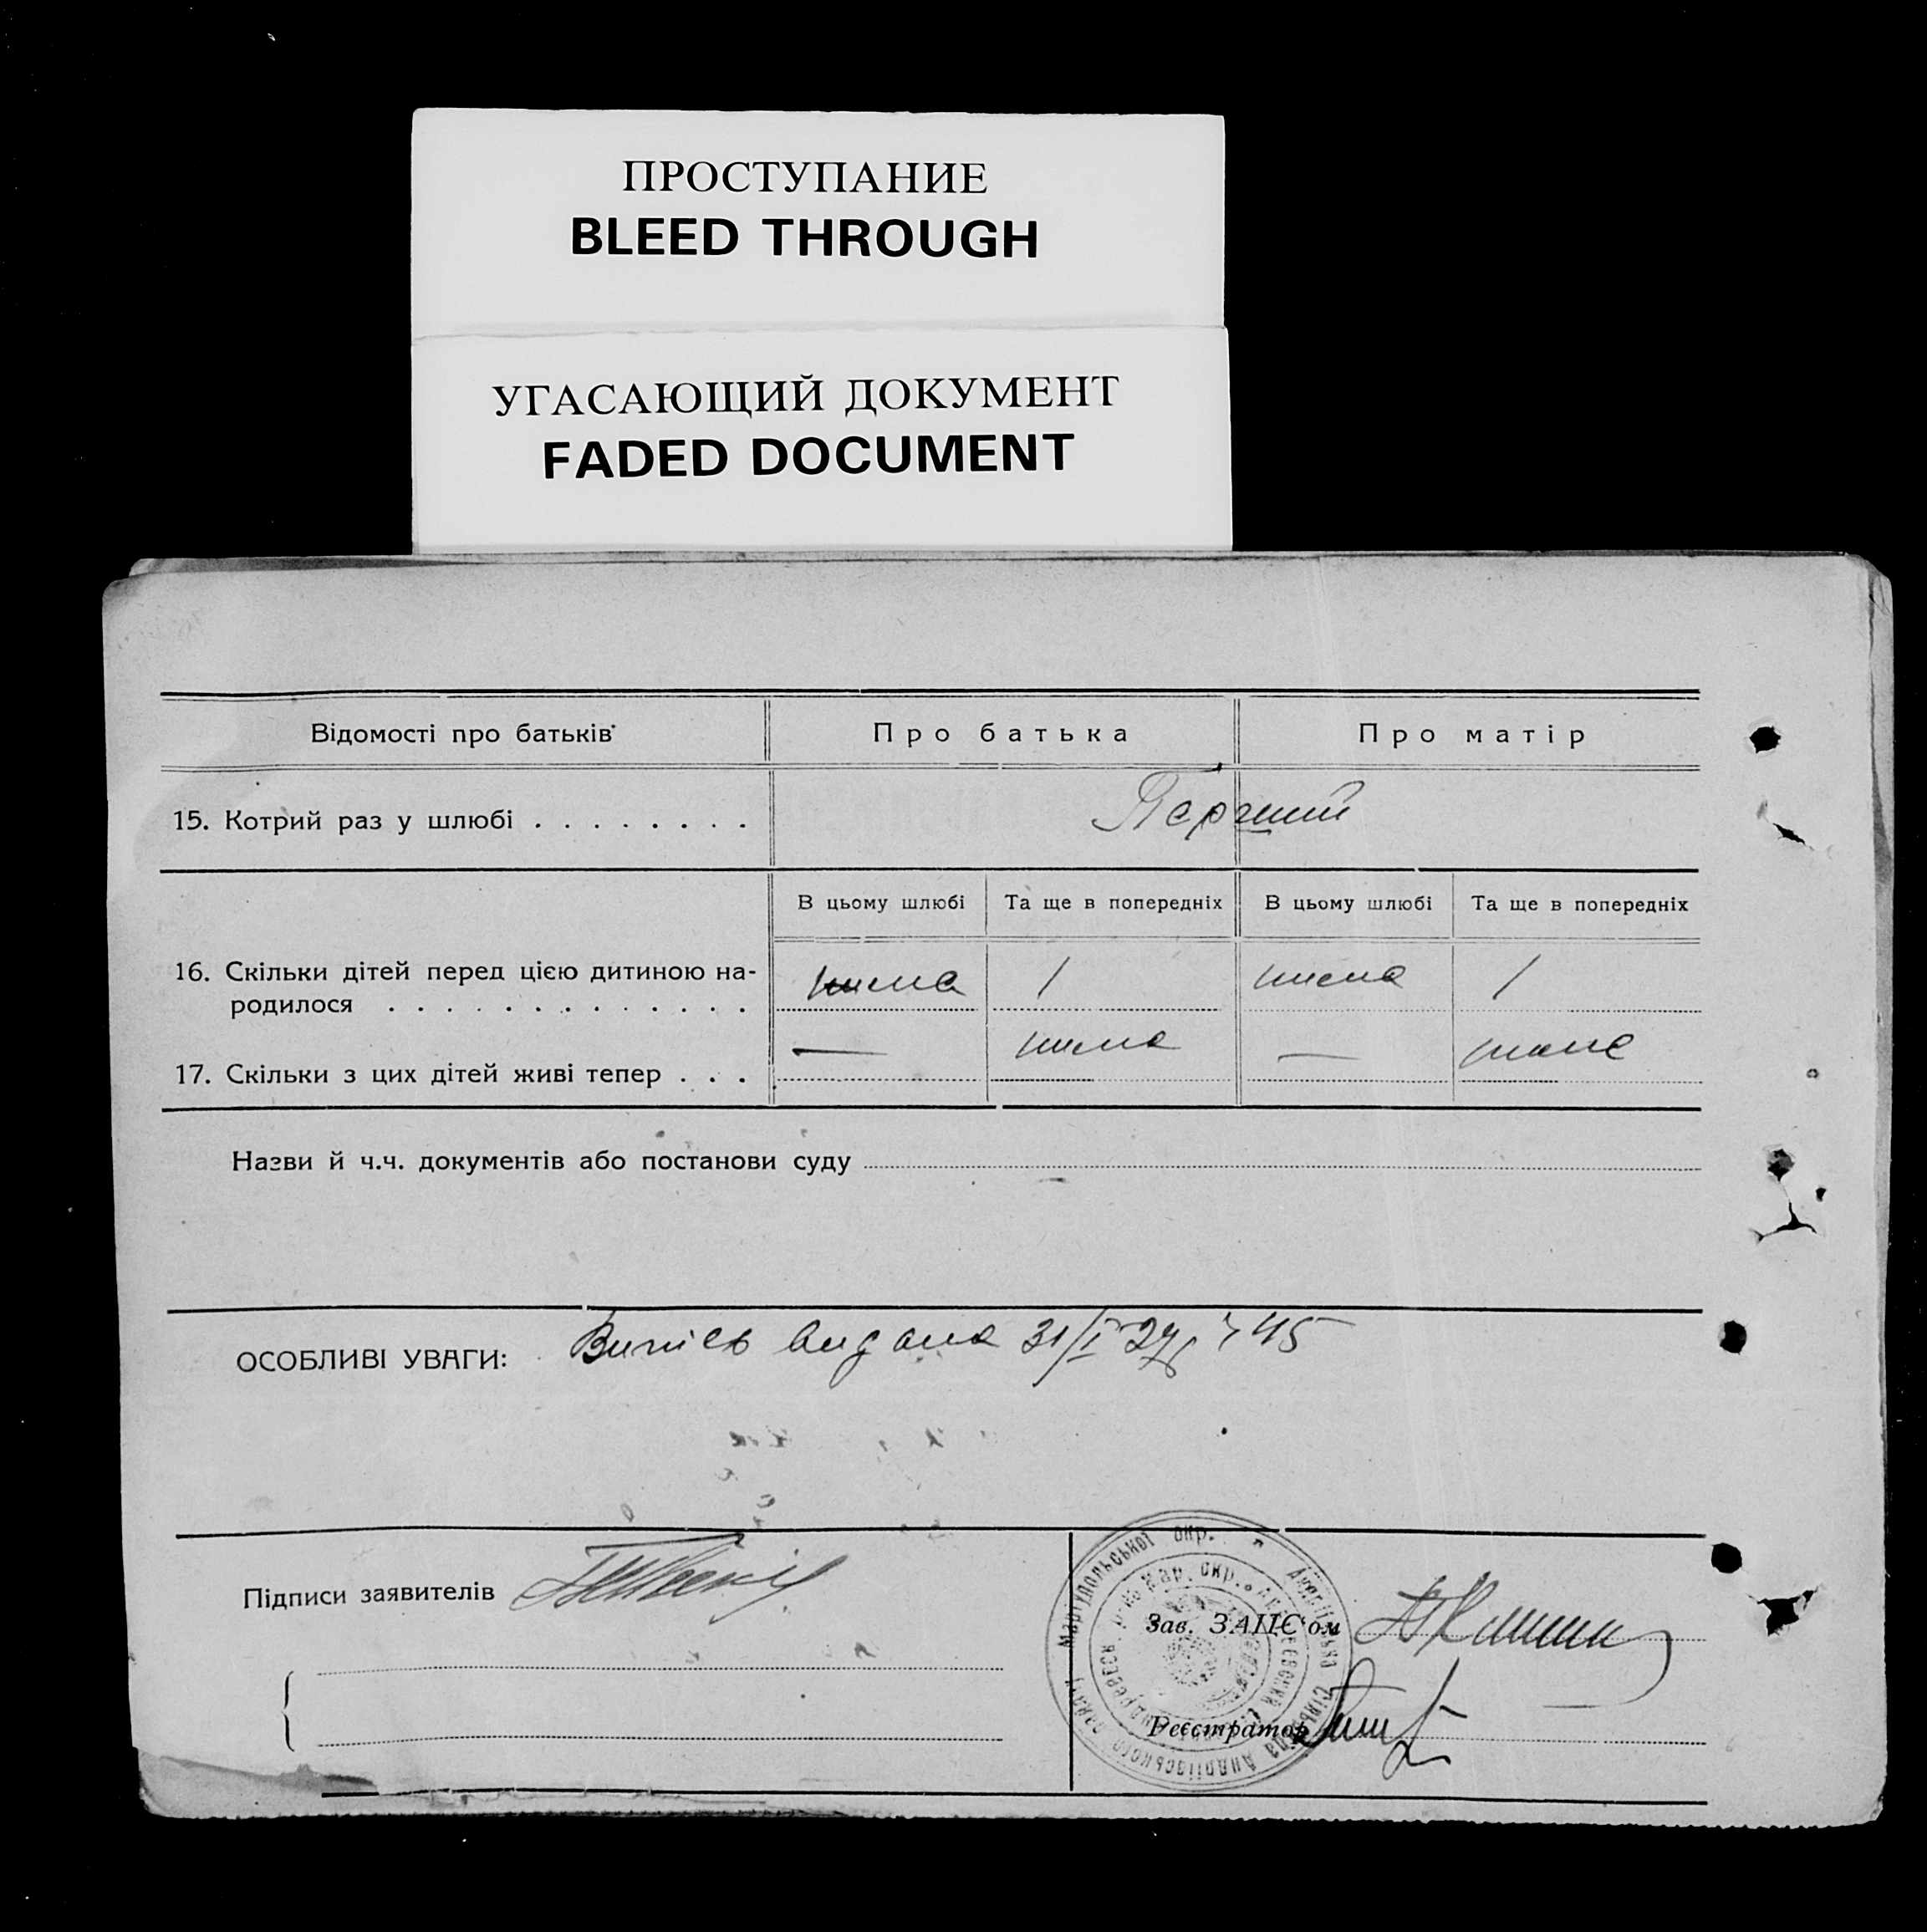 ПРОСТУПАНИЕ
BLEED THROUGH
УГАСАЮЩИЙ ДОКУМЕНТ
FADED DOCUMENT
Відомості про батьків
Про батька
Про матір
15. Котрий раз у шлюбі . . . . . . . .
Перший
В цьому шлюбі
Та ще в попередніх
В цьому шлюбі
Та ще в попередніх
16. Скільки дітей перед цією дитиною на-
родилося . . . . . . . . . . . . .
нема
1
нема
1
17. Скільки з цих дітей живі тепер . . .
—
нема
—
нема
Назви й ч.ч. документів або постанови суду
ОСОБЛИВІ УВАГИ:
Випись видана 31/I 27 45
Підписи заявителів
Маріупольської окр. Андріївська Сільрада Андріївського району
Зав. ЗАГС'ом
Реєстратор